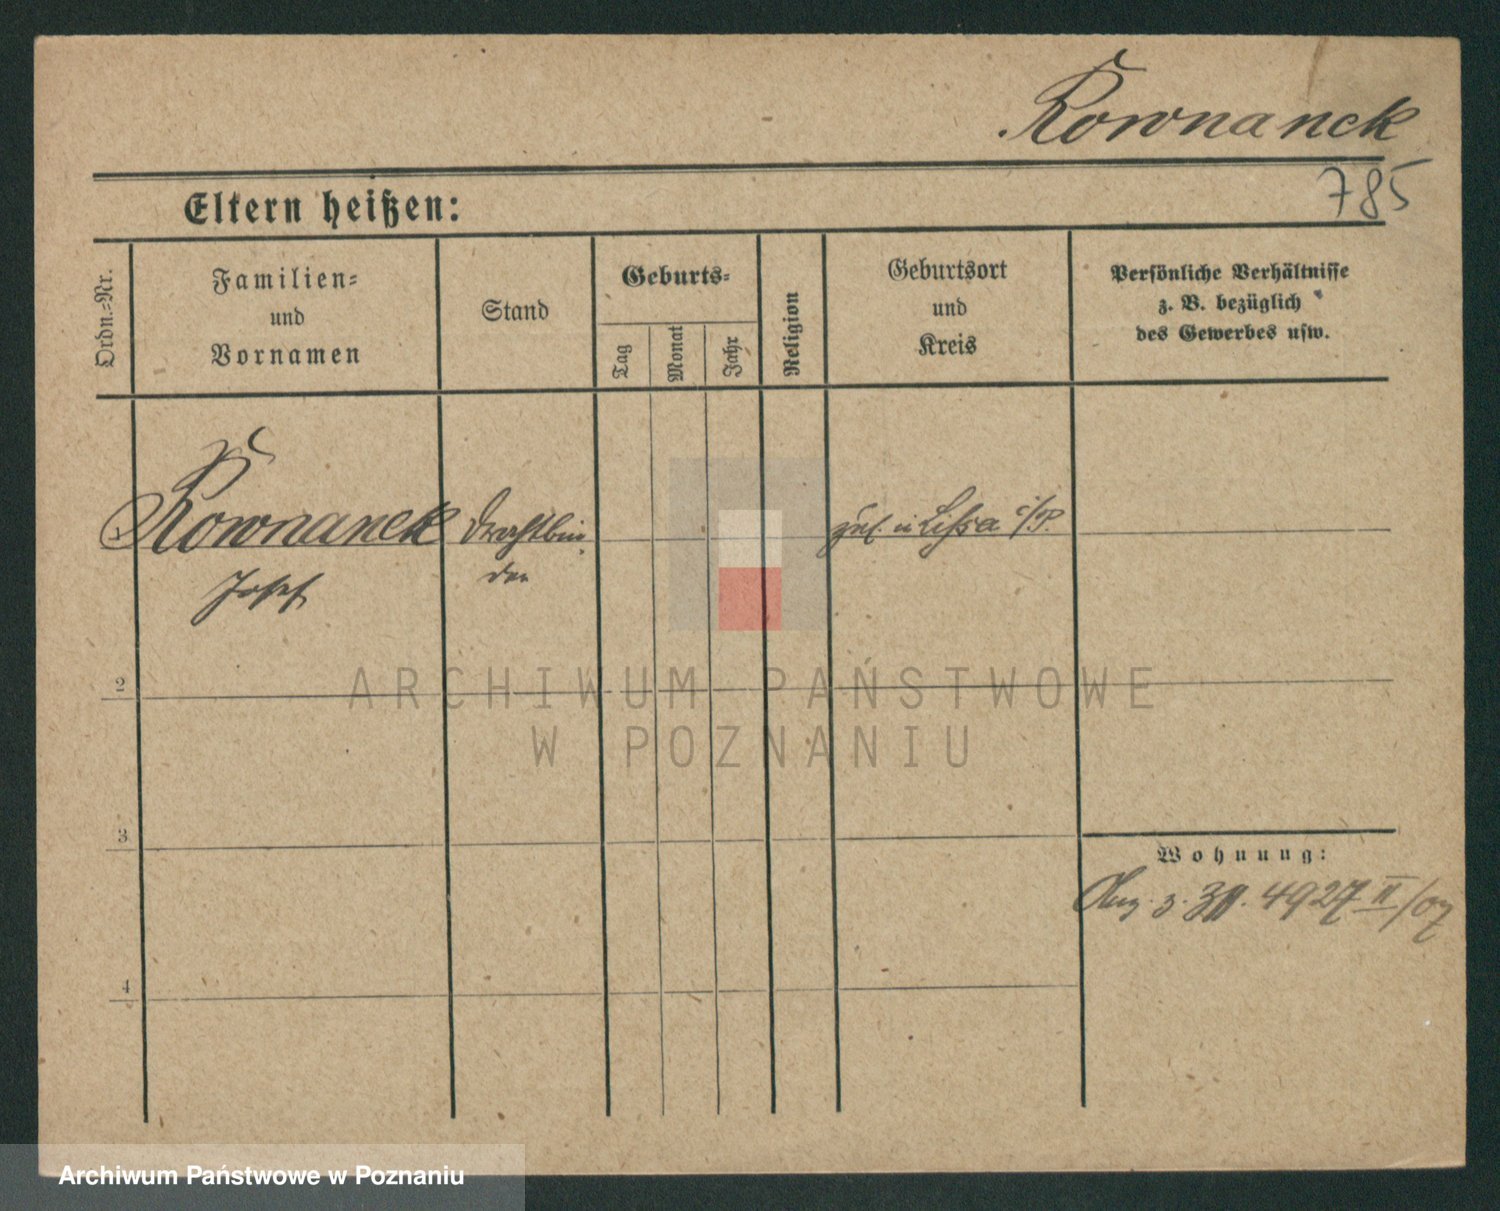 Rownanek
785
Eltern heißen:
Ordn.-Nr.
Familien-
und
Vornamen
Stand
Geburts-
Tag
Monat
Jahr
Religion
Geburtsort
und
Kreis
Persönliche Verhältnisse
z. B. bezüglich
des Gewerbes usw.
Rownanek
Josef
Drahtbin
der
zul. in Lissa i/P.
2
3
4
Wohnung:
z. 4927 II/07
ARCHIWUM PAŃSTWOWE
W POZNANIU
Archiwum Państwowe w Poznaniu